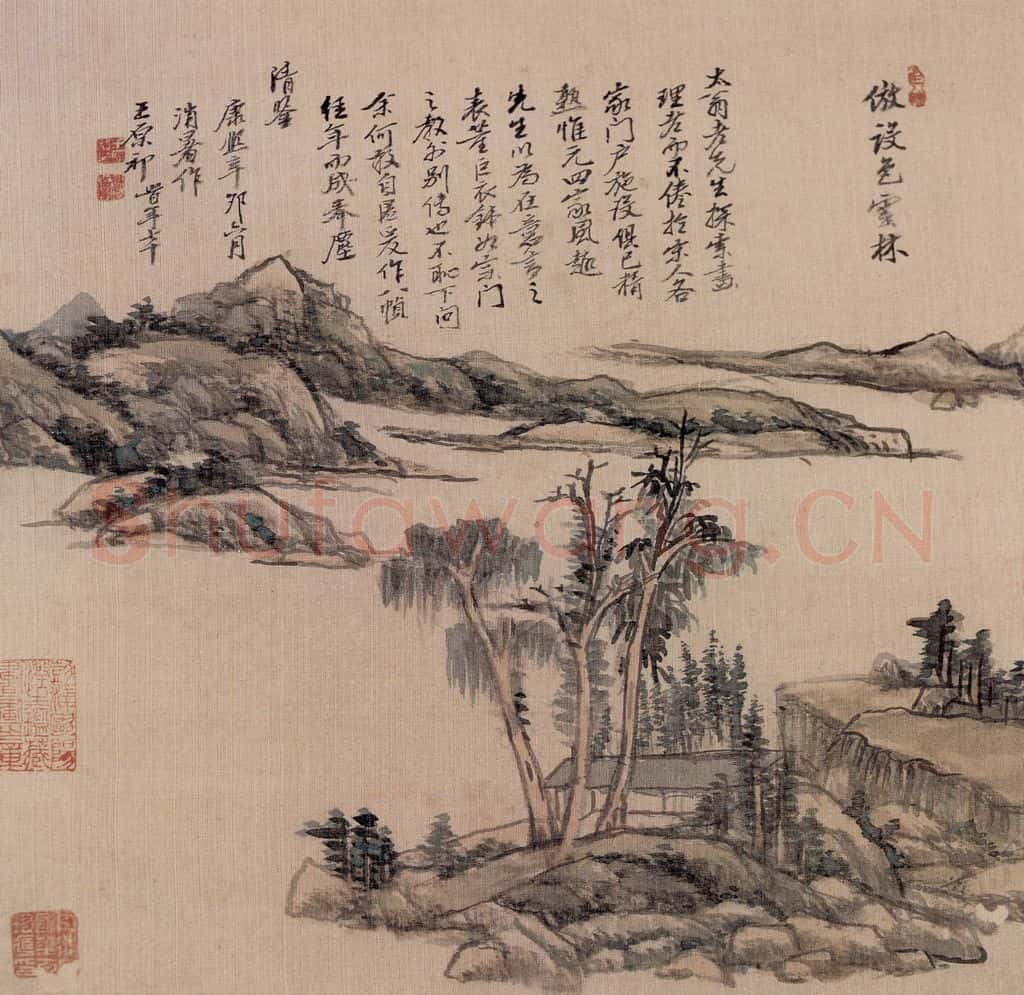 倣設色雲林
太翁老先生探索畫
理老而不倦於宋人各
家門戶施設俱已精
熟惟元四家風趣
先生以為在意言之
表董巨衣鉢如宗門
之教外別傳也不恥下問
余何敢自匿爰作八幀
經年而成奉塵
清鑒
康熙辛卯六月
消暑作
王原祁旹年七十
Shufawang.CN